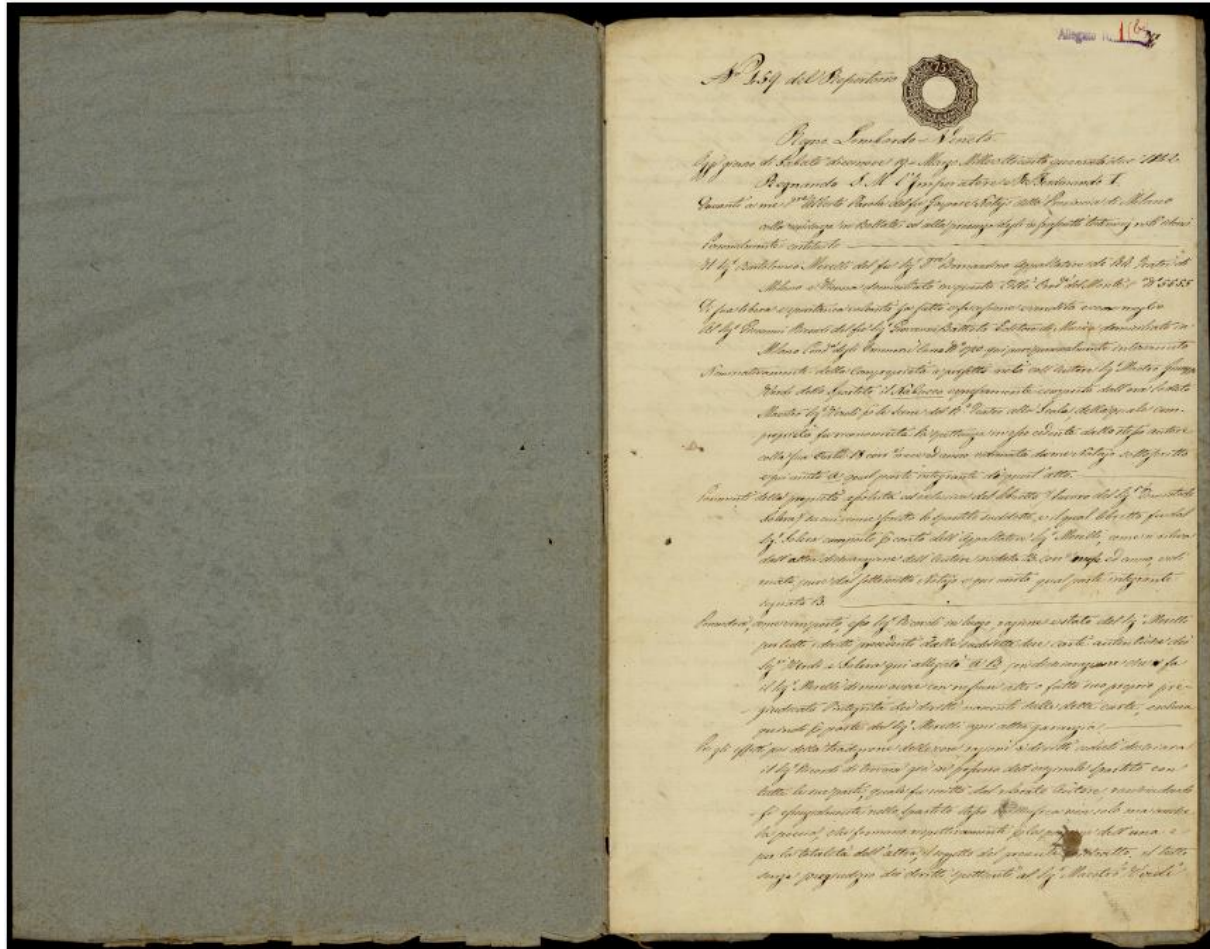 Allegato N. 1 (6
N.º 159 del Repertorio
75
Regno Lombardo-Veneto
Oggi giorno di Sabato diecinove 19 Marzo Mille ottocento quarantadue 1842
Regnando S. M. l'Imperatore e Re Ferdinando I.
Davanti a me D.re Alberto Parola del fu Gaspare Notajo della Provincia di Milano
colla residenza in ed alla presenza degli infrascritti testimonj
Personalmente costituito
Il Sig.r Bartolomeo Merelli del fu Sig.r D.re Bernardino Appaltatore dei RR. Teatri di
Milano e Vienna domiciliato in questa Città Cont.a del Monte N.º 5555
Di sua libera e spontanea volontà ha fatto e fa cessione e vendita
Al Sig.r Giovanni Ricordi del fu Sig.r Giovanni Battista Editore di Musica domiciliato in
Milano Cont.a degli N.º 1720 qui pure personalmente intervenuto
Nominativamente della Comproprietà a perfetta metà coll'Autore Sig.r Maestro Giuseppe
Verdi dello Spartito il Nabucco espressamente composto dall'ora lodato
Maestro Sig.r Verdi per le scene del R.º Teatro alla Scala, della quale com-
proprietà fu riconosciuta la spettanza in esso cedente dallo stesso autore
colla sua Carta 18 corr.e mese ed anno, vidimata da me Notajo sottoscritto
e qui unita A qual parte integrante di quest'atto.
Parimenti della proprietà assoluta ed esclusiva del libretto, lavoro del Sig.r Temistocle
Solera, su cui venne scritto lo spartito suddetto, e il qual libretto fu dal
Sig.r Solera composto per conto dell'Appaltatore Sig.r Merelli, come si rileva
dall'altra dichiarazione dell'Autore in data 13 corr.e mese ed anno, vidi-
mata pure dal sottoscritto Notajo e qui unita qual parte integrante
segnata B.
esso Sig.r Ricordi in luogo, ragione e stato del Sig.r Merelli
per tutti i diritti procedenti dalle suddette due carte autentiche dei
Sig.ri Verdi e Solera qui allegate A B, con dichiarazione che fa
il Sig.r Merelli di non avere con nessun atto o fatto suo proprio pre-
giudicato l'integrità dei diritti nascenti dalle dette carte, esclusa
quindi per parte del Sig.r Merelli ogni altra garanzia.
Per gli effetti poi della tradizione delle ragioni e diritti ceduti dichiara
il Sig.r Ricordi di trovarsi già in possesso dell'originale spartito con
tutte le sue parti,
nello spartito stesso la musica non solo ma anche
la poesia, che formano rispettivamente per la porzione dell'una e
per la totalità dell'altra, il soggetto del presente contratto, il tutto
senza pregiudizio dei diritti spettanti al Sig.r Maestro Verdi